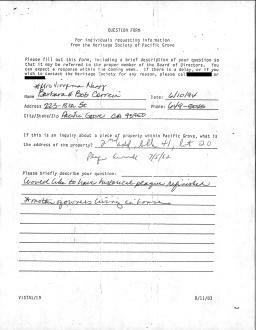 QUESTION FORM
For individuals requesting information
from the Heritage Society of Pacific Grove
Please fill out this form, including a brief description of your question so
that it may be referred to the proper member of the Board of Directors. You
can expect a response within the coming week. If there is a delay, or if you
wish to contact the Heritage Society for any reason, please call or
Virginia
Name Barbara & Bob Date: 6/10/94
Address 223 - 18th St Phone:
City/State/Zip Pacific Grove CA 93950
If this is an inquiry about a piece of property within Pacific Grove, what is
the address of the property? 2nd Add, blk 41, lot 20
Please briefly describe your question:
Would like to have historical plaque refinished
owners living in house
VISTA1/19
8/11/83